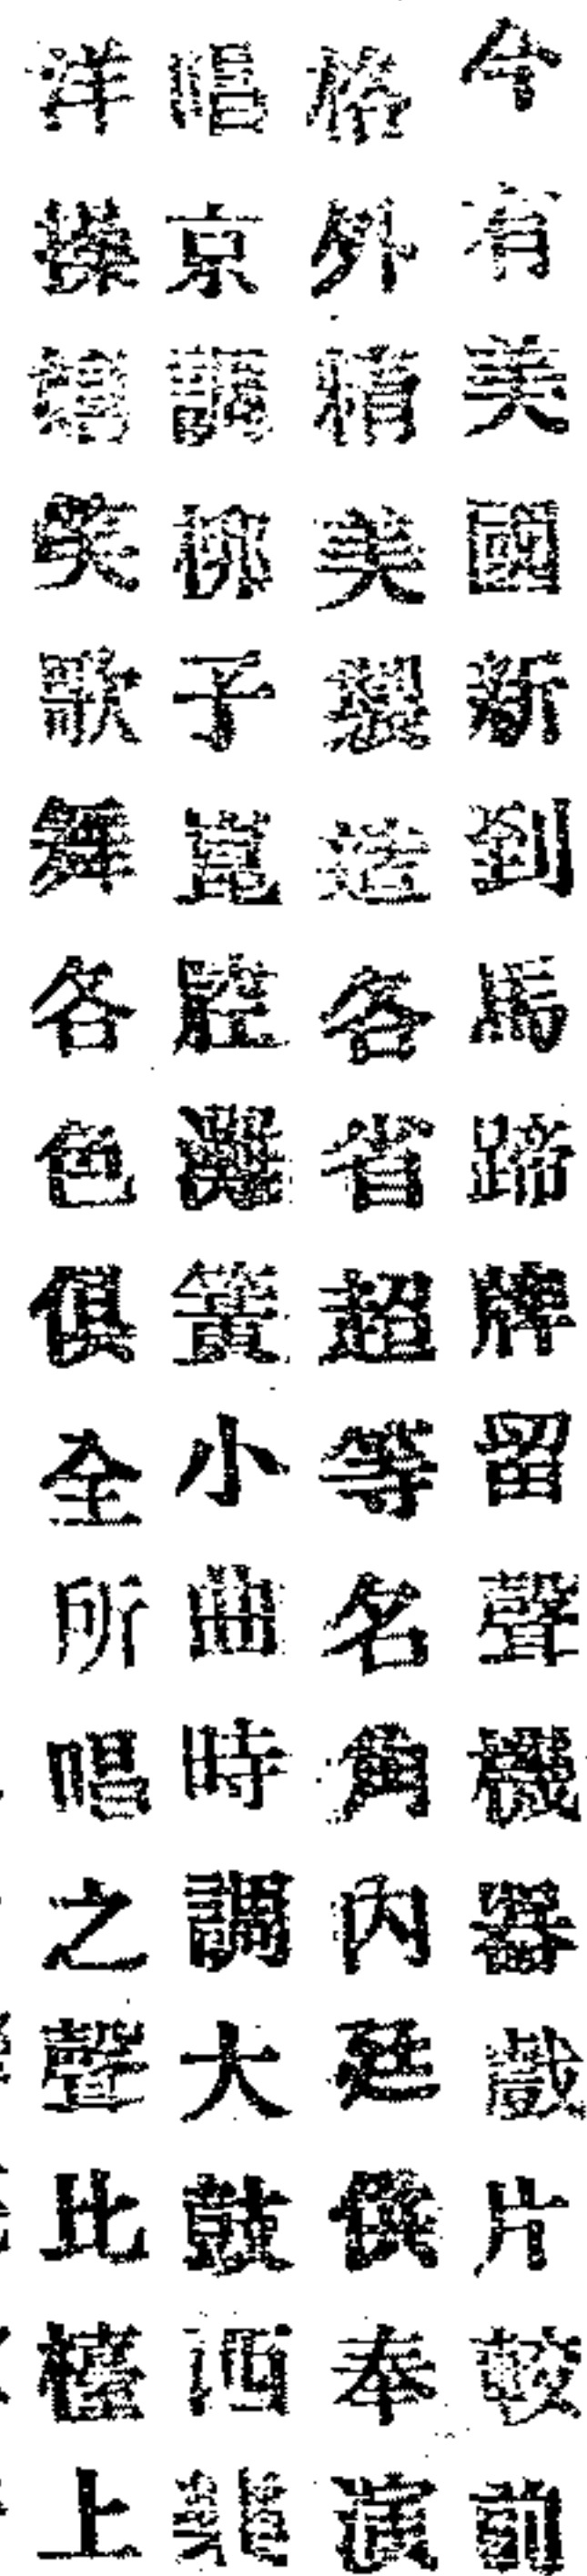 今有美國新到馬蹄牌留聲機器戲片較前
格外精美製造各省超等名角內廷供奉演
唱京調梆子崑腔灘簧小曲時調大鼓
洋操嬉笑歌舞各色俱全所唱之聲比檯上